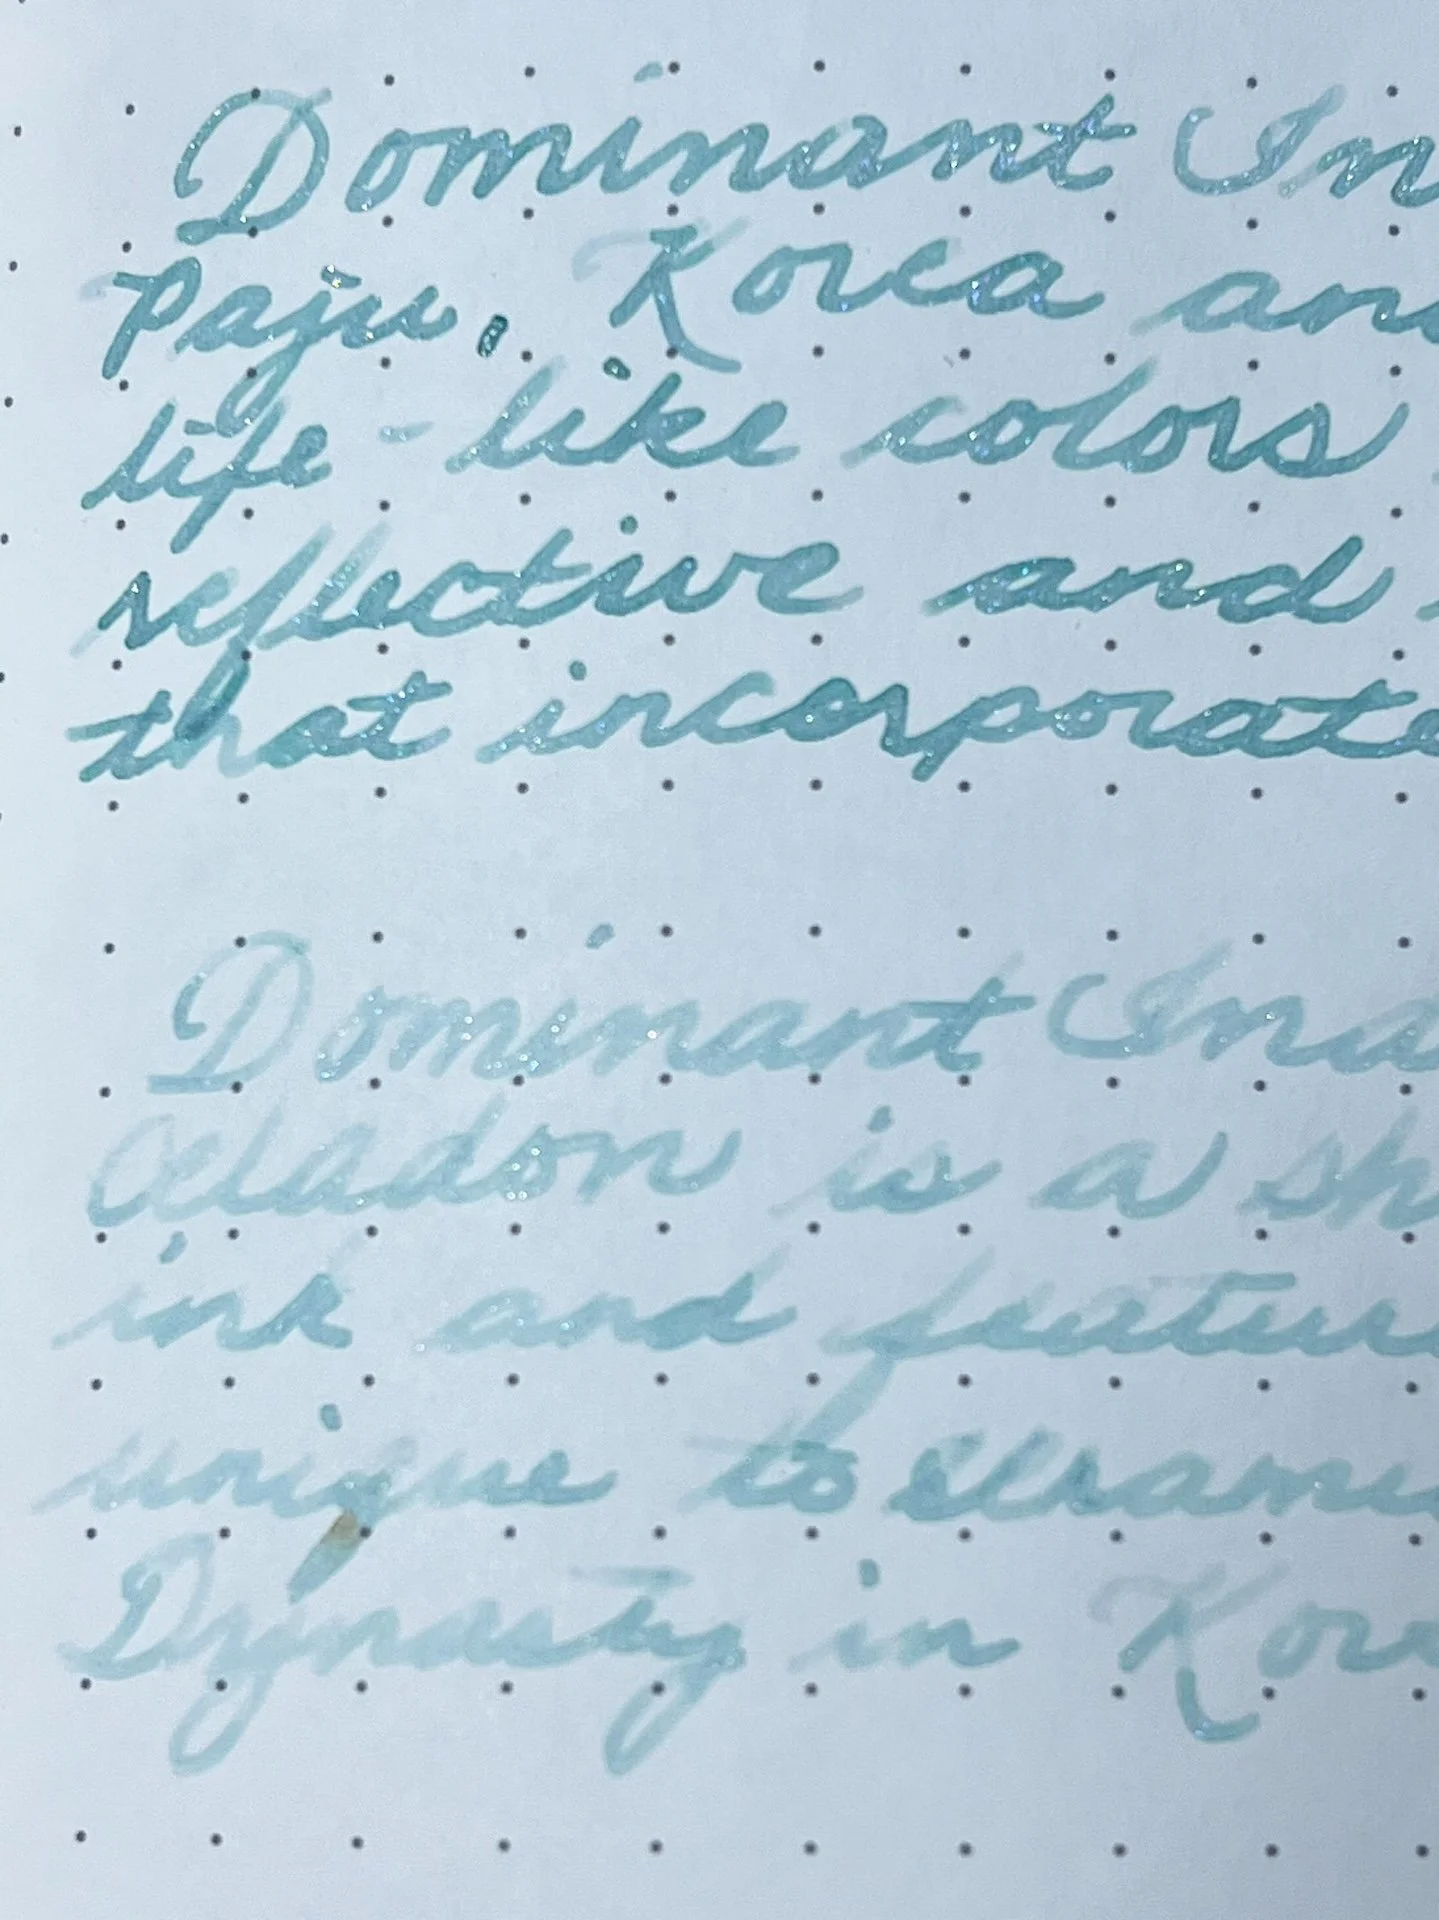 Dominant In
Paju, Korea and
life-like colors
reflective and
that incorporate
Dominant Ina
Celadon is a sh
ink and featur
unique to cerami
Dynasty in Kore